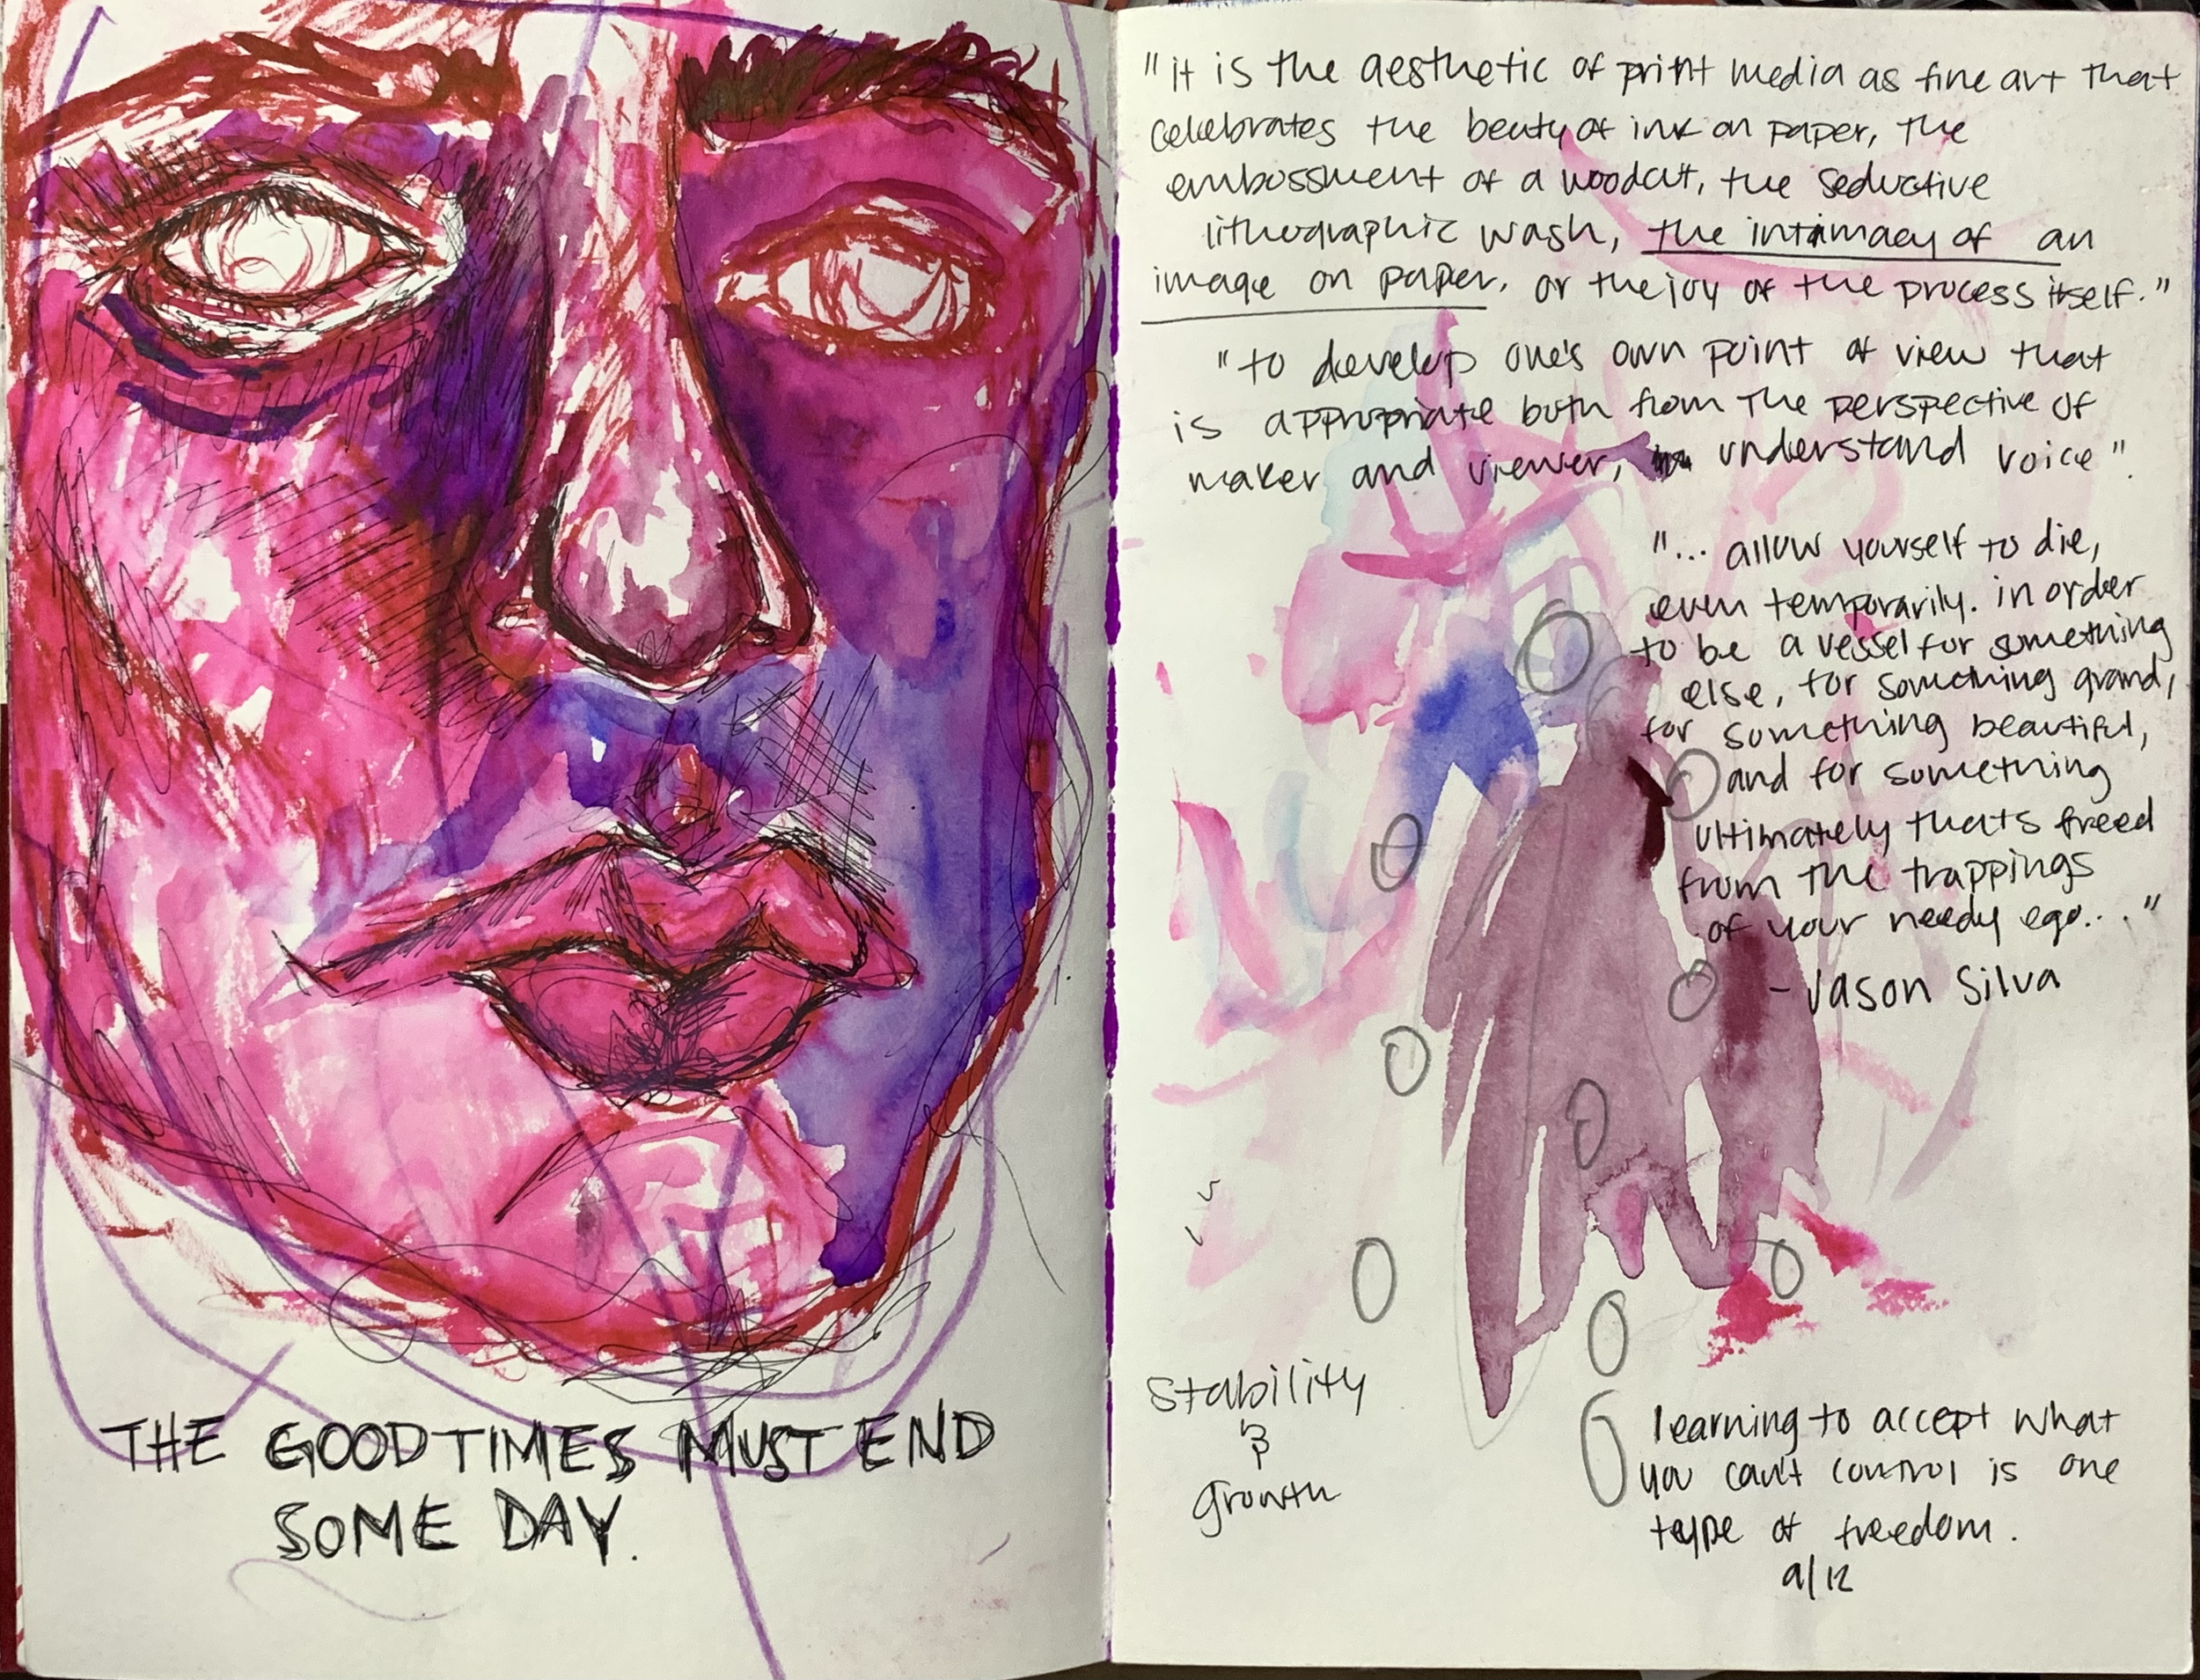 THE GOOD TIMES MUST END
SOME DAY.
"it is the aesthetic of print media as fine art that
celebrates the beuty of ink on paper, the
embossment of a woodcut, the seductive
lithographic wash, the intimacy of an
image on paper, or the joy of the process itself."
"to develop one's own point of view that
is appropriate both from the perspective of
maker and viewer, understand voice".
"... allow yourself to die,
even temporarily. in order
to be a vessel for something
else, for something grand,
for something beautiful,
and for something
ultimately thats freed
from the trappings
of your needy ego..."
- Jason Silva
Stability
&
growth
learning to accept what
you can't control is one
type of freedom.
9/12